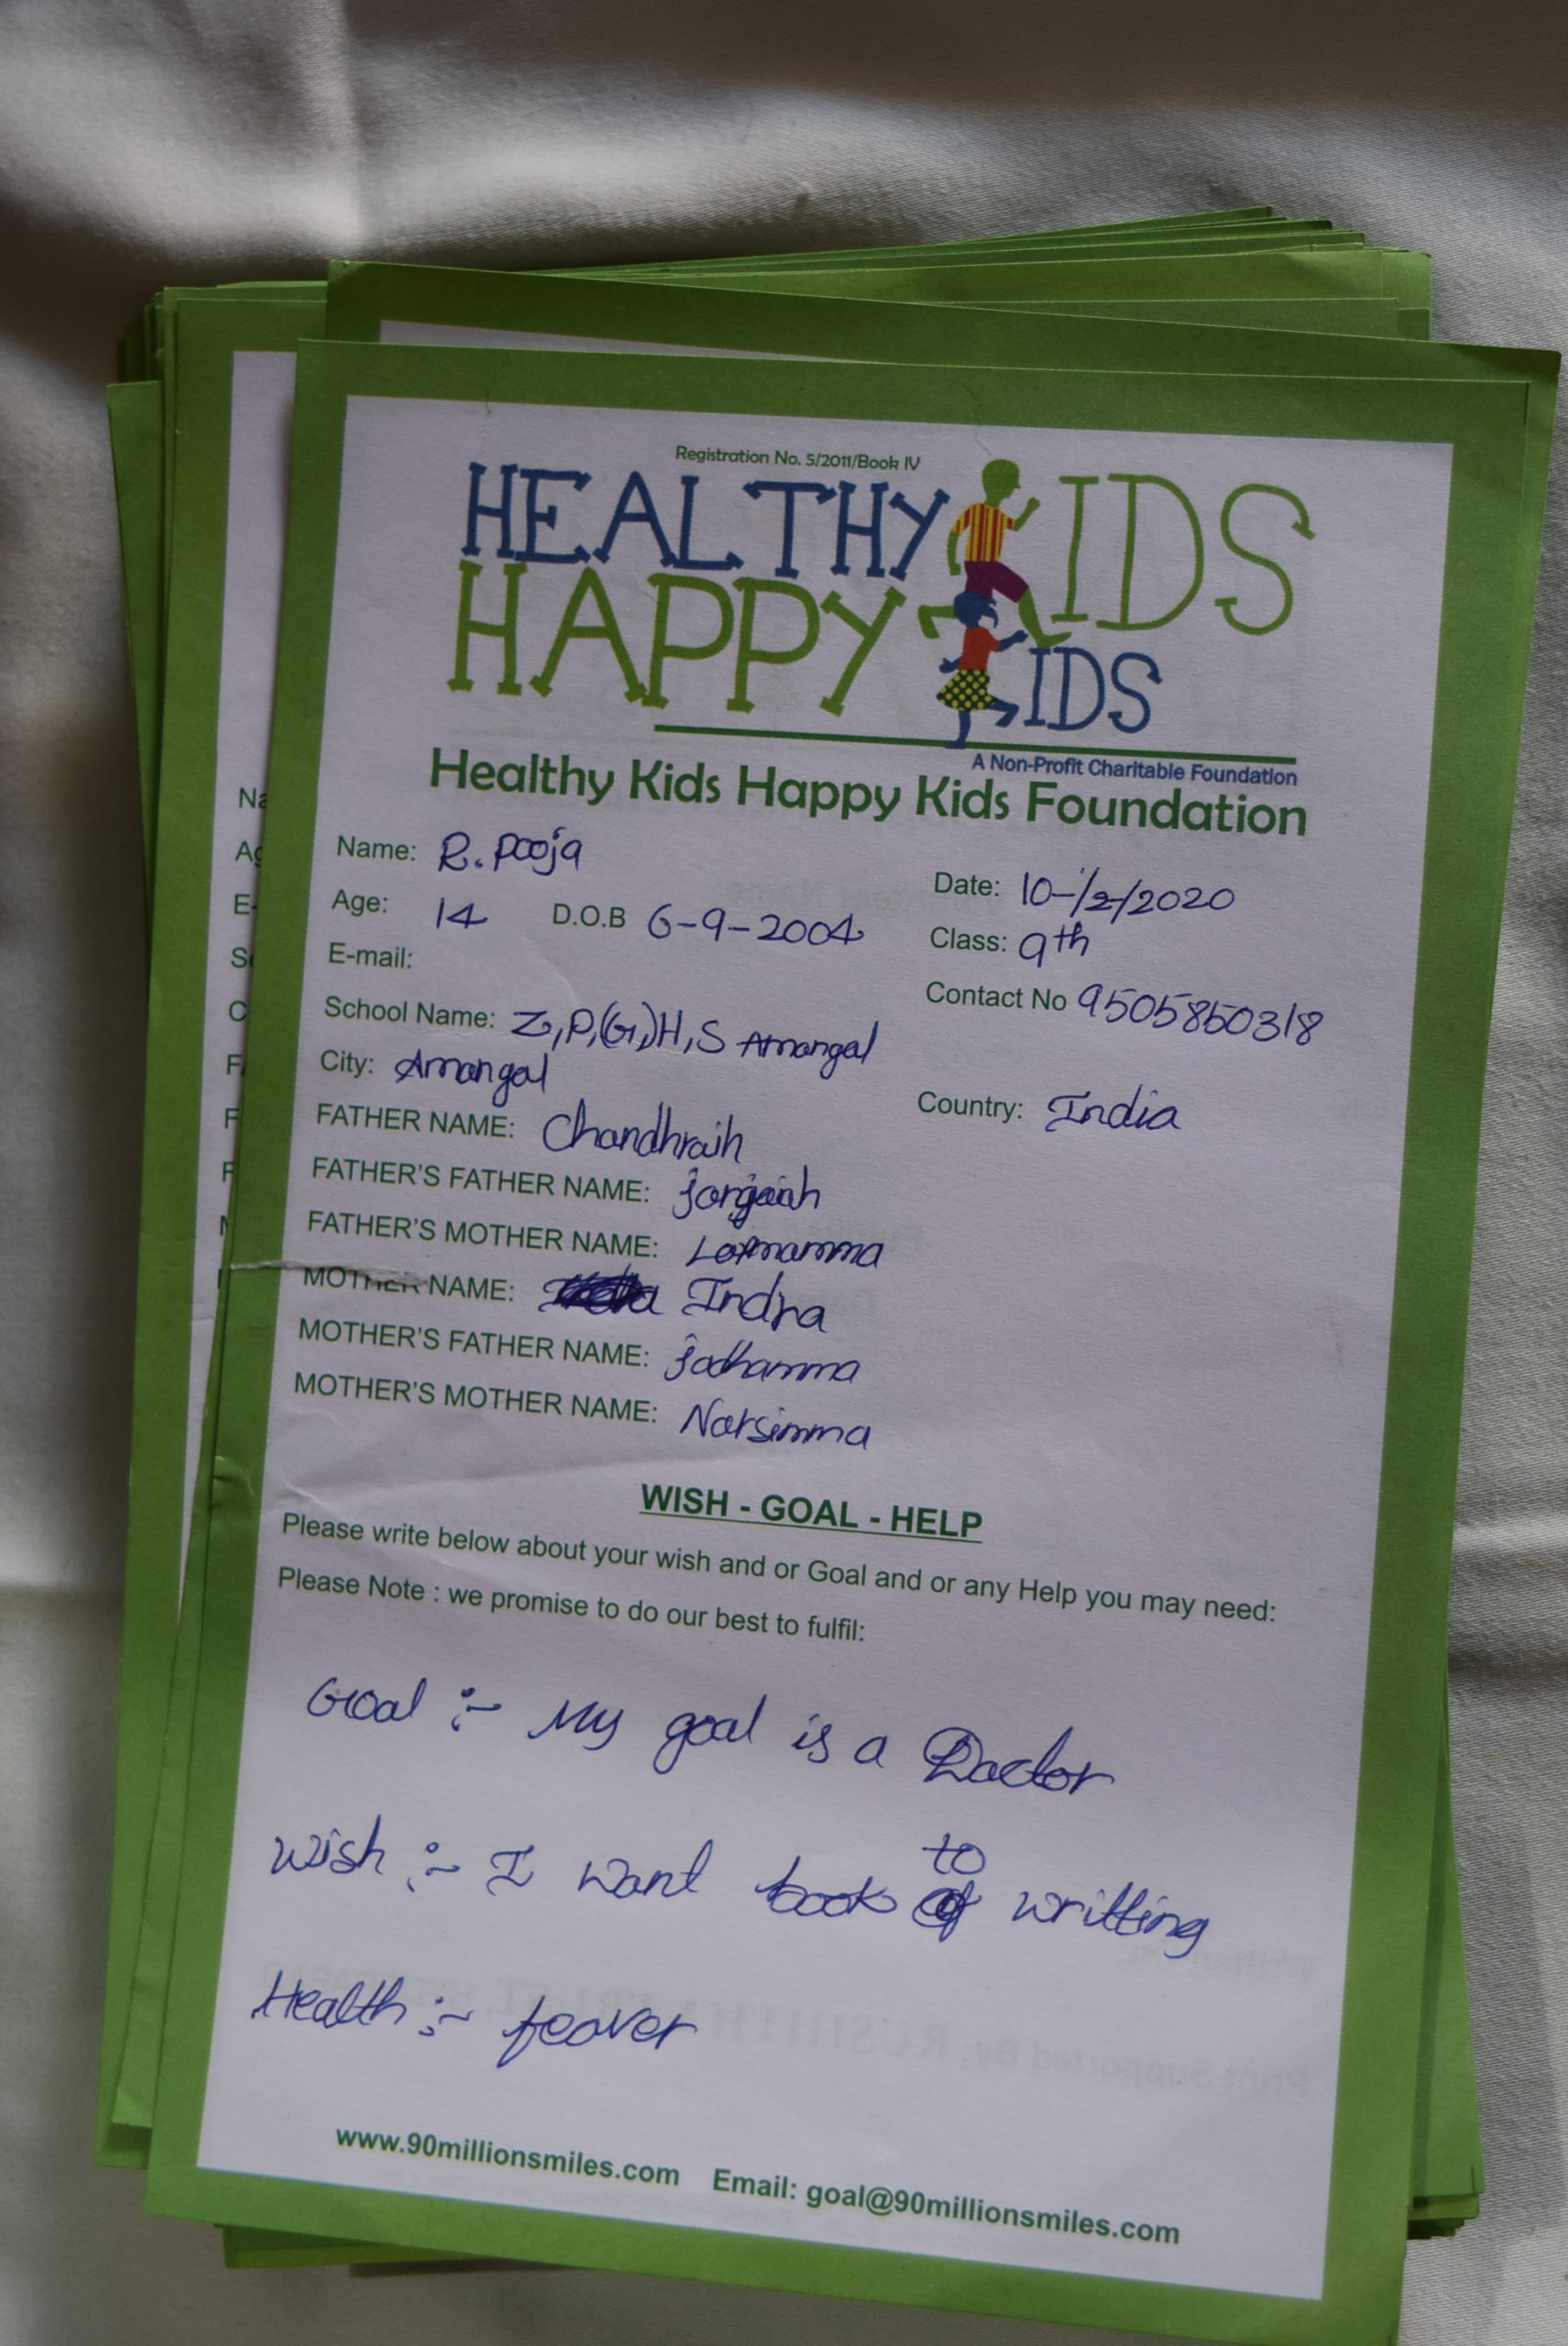 Registration No. 5/2011/Book IV
HEALTHY KIDS
HAPPY KIDS
A Non-Profit Charitable Foundation
Healthy Kids Happy Kids Foundation
Name: R. Pooja
Date: 10-/2/2020
Age: 14 D.O.B 6-9-2004
Class: 9th
E-mail:
Contact No 9505850318
School Name: Z,P,(G,)H,S Amangal
City: Amangal
Country: India
FATHER NAME: Chandhraih
FATHER'S FATHER NAME: jangaiah
FATHER'S MOTHER NAME: Laxmamma
MOTHER NAME: Indra
MOTHER'S FATHER NAME: jadhamma
MOTHER'S MOTHER NAME: Narsimma
WISH - GOAL - HELP
Please write below about your wish and or Goal and or any Help you may need:
Please Note : we promise to do our best to fulfil:
Goal :- My goal is a Doctor
Wish :- I want book to writting
Health :- feaver
www.90millionsmiles.com Email: goal@90millionsmiles.com